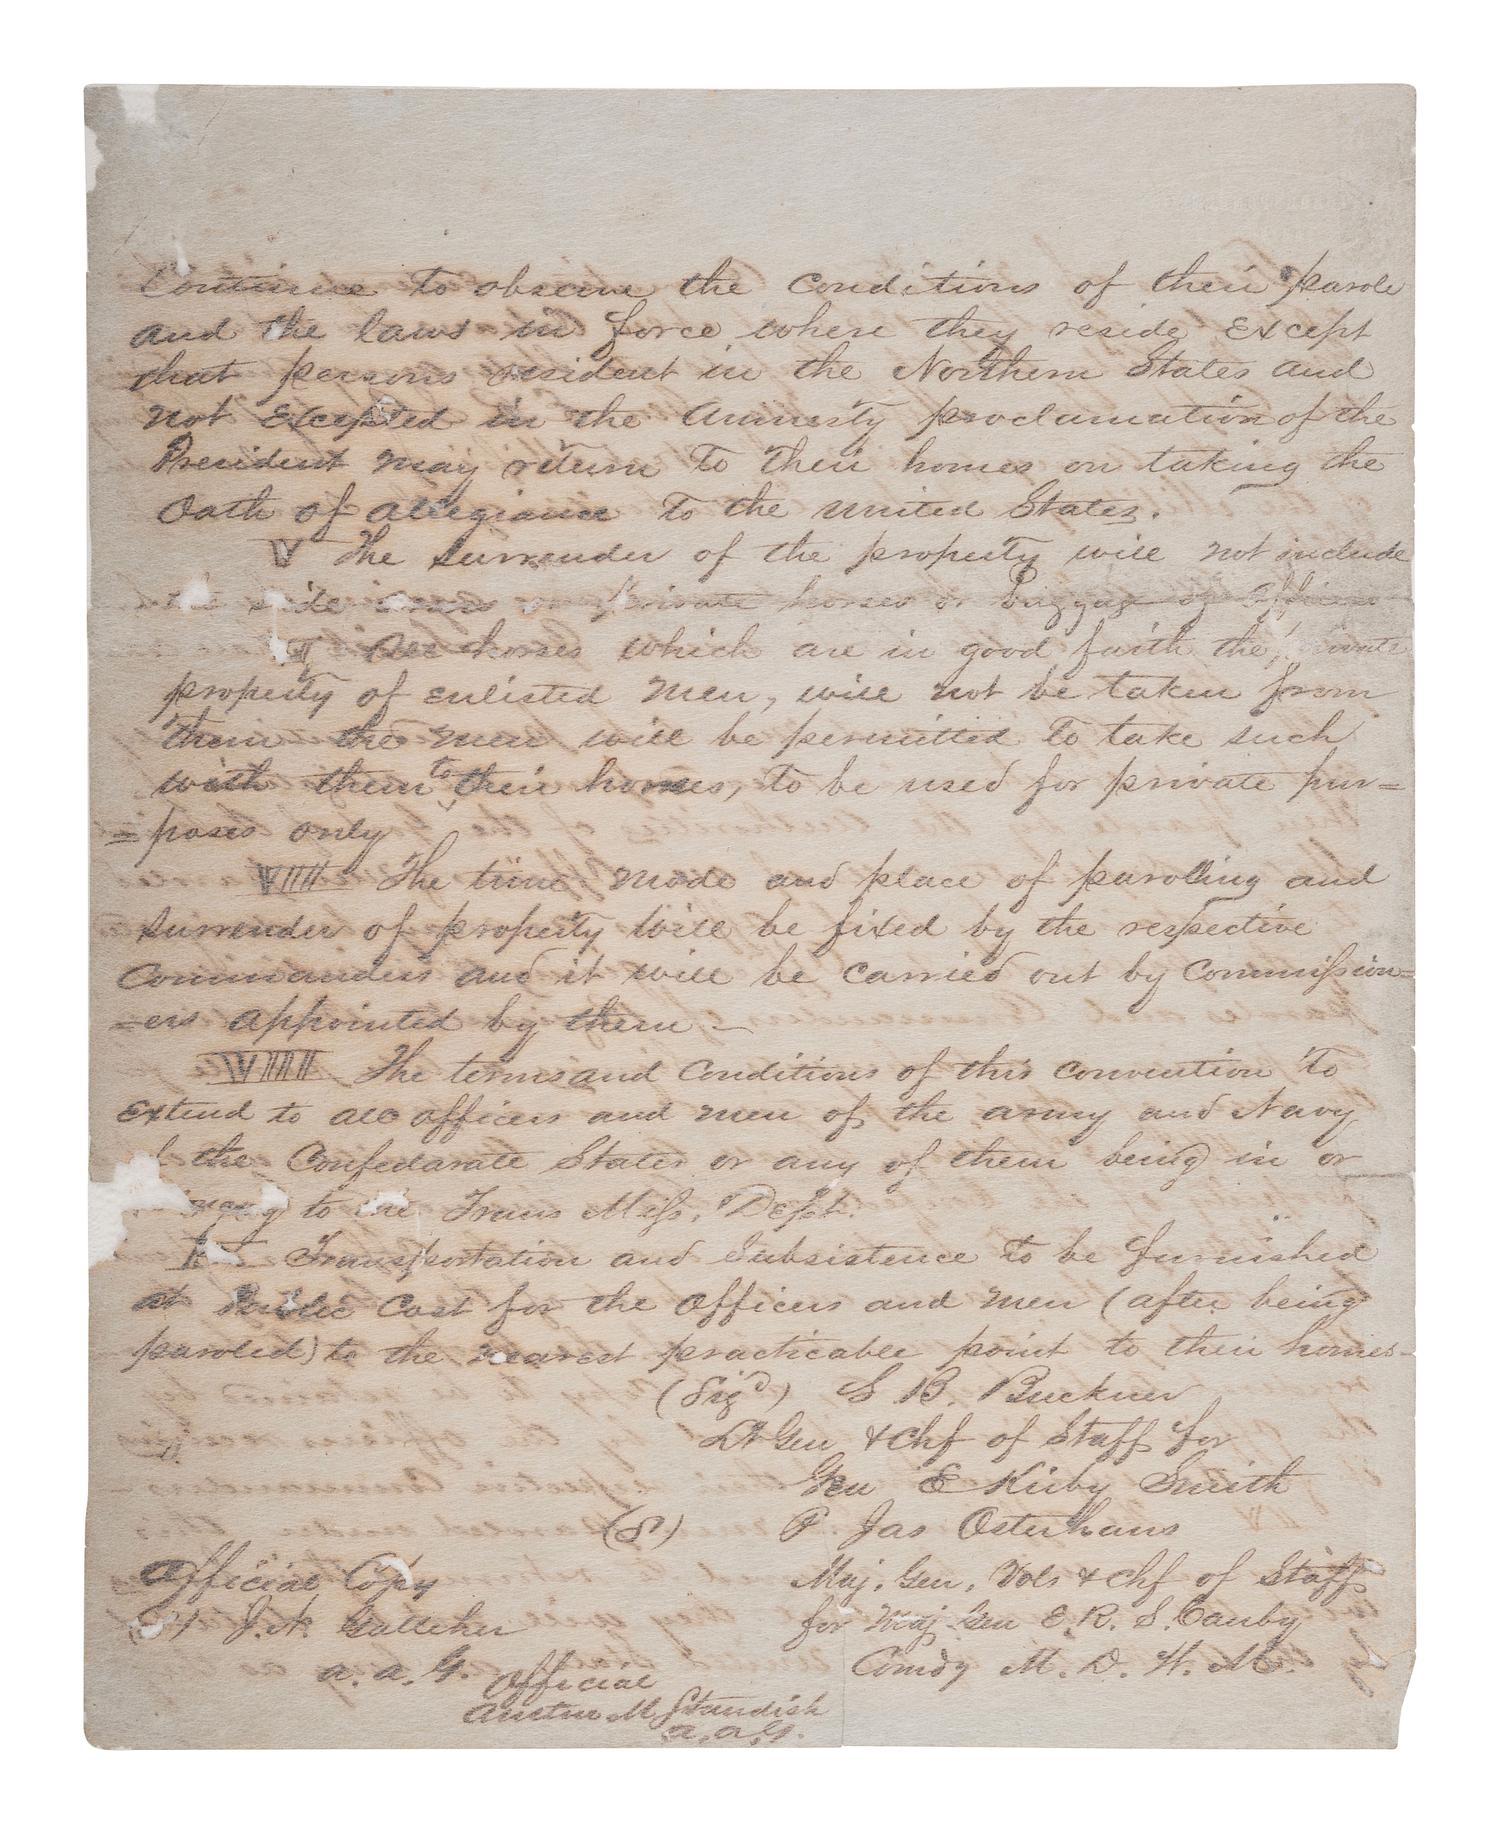 Continue to observe the Conditions of their parole
and the laws in force where they reside Except
that persons resident in the Northern States and
not Excepted in the Amnesty proclamation of the
President may return to their homes on taking the
Oath of allegiance to the united States.
V The Surrender of the property will not include
the side arms or private horses or baggage of Officers
All horses which are in good faith the private
property of enlisted men, will not be taken from
them the men will be permitted to take such
with them to their homes, to be used for private pur=
=poses only
VIII The time mode and place of paroling and
Surrender of property will be fixed by the respective
Commanders and it will be carried out by Commission=
=ers appointed by them
VIIII The terms and Conditions of this convention to
Extend to all officers and men of the army and Navy
the Confedarate States or any of them being in or
to the Trans Miss. Dept.
Transportation and Subsistence to be furnished
at Public Cost for the Officers and men (after being
paroled) to the nearest practicable point to their homes
(Sigd) S B. Buckner
Lt Gen & Chf of Staff for
Gen E Kirby Smith
(S) P. Jas Osterhaus
Official Copy Maj. Gen. Vols & Chf of Staff
J. N. Galleher for Maj Gen E. R. S. Canby
a. a. G. Comdg M. D. W. M.
Official
Austin M Standish
a. a. G.